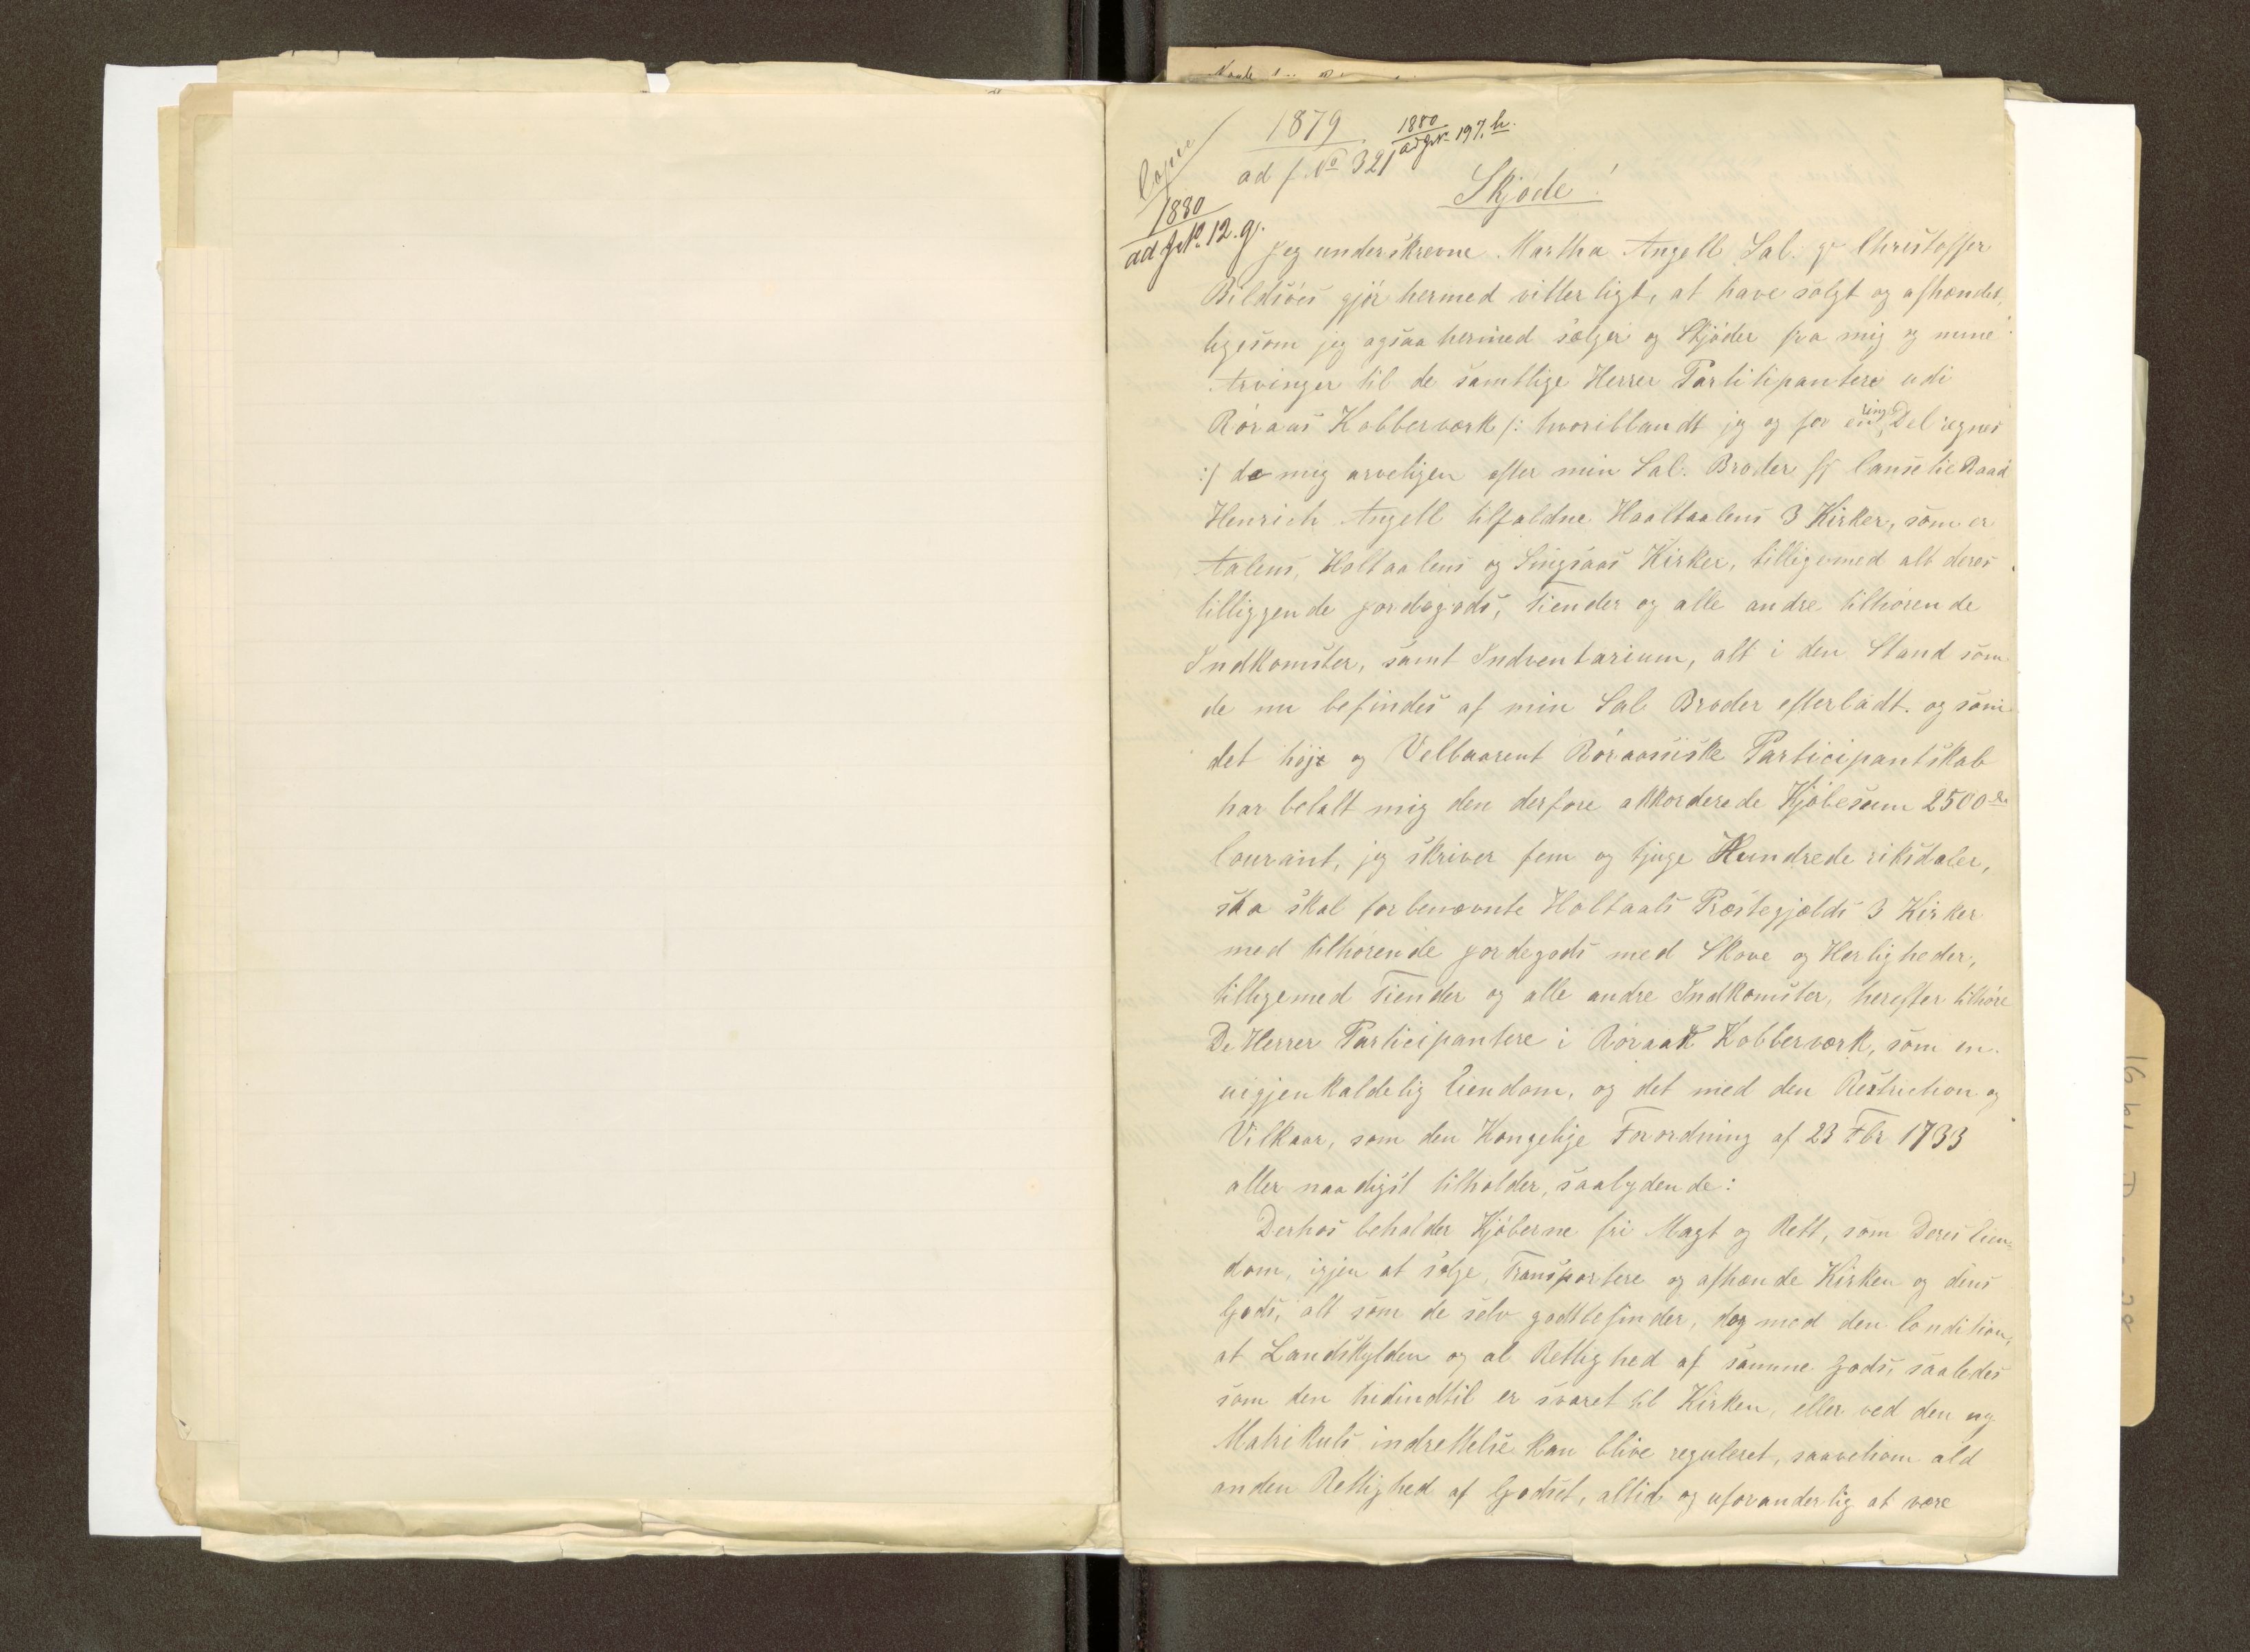 Copie
1879
ad f. No 321
1880
ad Jk 197. h.
1880
ad J.No. 12. g.
Skjøde!
Jeg underskrevne Martha Angell Sal. Christoffer
Bildsöes gjör hermed vitterligt, at have solgt og afhændet,
ligesom jeg ogsaa hermed sælger og Skjöder fra mig og mine
Arvinger til de samtlige Herrer Partitipantere udi
Röraas Kobberværk /: hvoriblandt jeg og for en ring Del egner
:/ de mig arveligen efter min Sal. Broder Cancelie Raad
Henrich Angell tilfaldne Haaltaalens 3 Kirker, som er
Aalens, Holtaalens og Singsaas Kirker, tilligemed alt deres
tilliggende Jordegods, Tiender og alle andre tilhörende
Indkomster, samt Indventarium, alt i den Stand som
de nu befindes af min Sal Broder efterladt. og som
det höje og Velbaarent Röraasiske Participantskab
har betalt mig den derfore akkorderede Kjöbesum 2500 Rd
Courant, jeg skriver fem og tjuge Hundrede riksdaler,
saa skal forbenævnte Holtaals Præstegjælds 3 Kirker
med tilhörende Jordegods med Skove og Herligheder,
tilligemed Tiender og alle andre Indkomster, herefter tilhöre
De Herrer Participantere i Röraas Kobberværk, som en
uigjenkaldelig Eiendom, og det med den Restriction og
Vilkaar, som den Kongelige Forordning af 23 Fbr 1733
aller naadigst tilholder, saalydende:
Derhos beholder Kjöberne fri Magt og Rett, som Deres Eien=
dom, igjen at sælge, Transportere og afhænde Kirken og dens
Gods, alt som de selv godtbefinder, dog med den Condition,
at Landskylden og al Rettighed af samme Gods, saaledes
som den hidindtil er svaret til Kirken, eller ved den ny
Matrikuls indrettelse kan blive reguleret, saavelsom ald
anden Rettighed af Godset, altid og uforanderlig at være